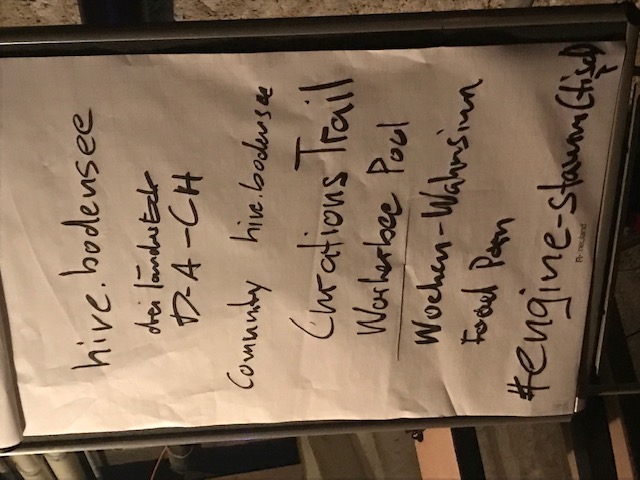 hive.bodensee
dreiländereck
D-A-CH
Community hive.bodensee
Curations Trail
Workerbee Pool
Wochen-Wahnsinn
Food Porn
#engine-stamm(tisch)
neuland